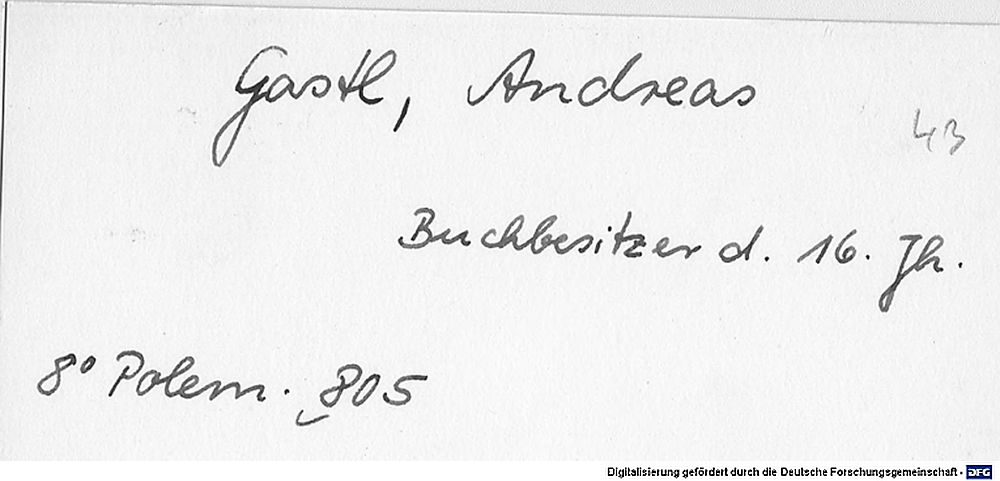 Gastl, Andreas
43
Buchbesitzer d. 16. Jh.
8° Polem. 805
Digitalisierung gefördert durch die Deutsche Forschungsgemeinschaft - DFG